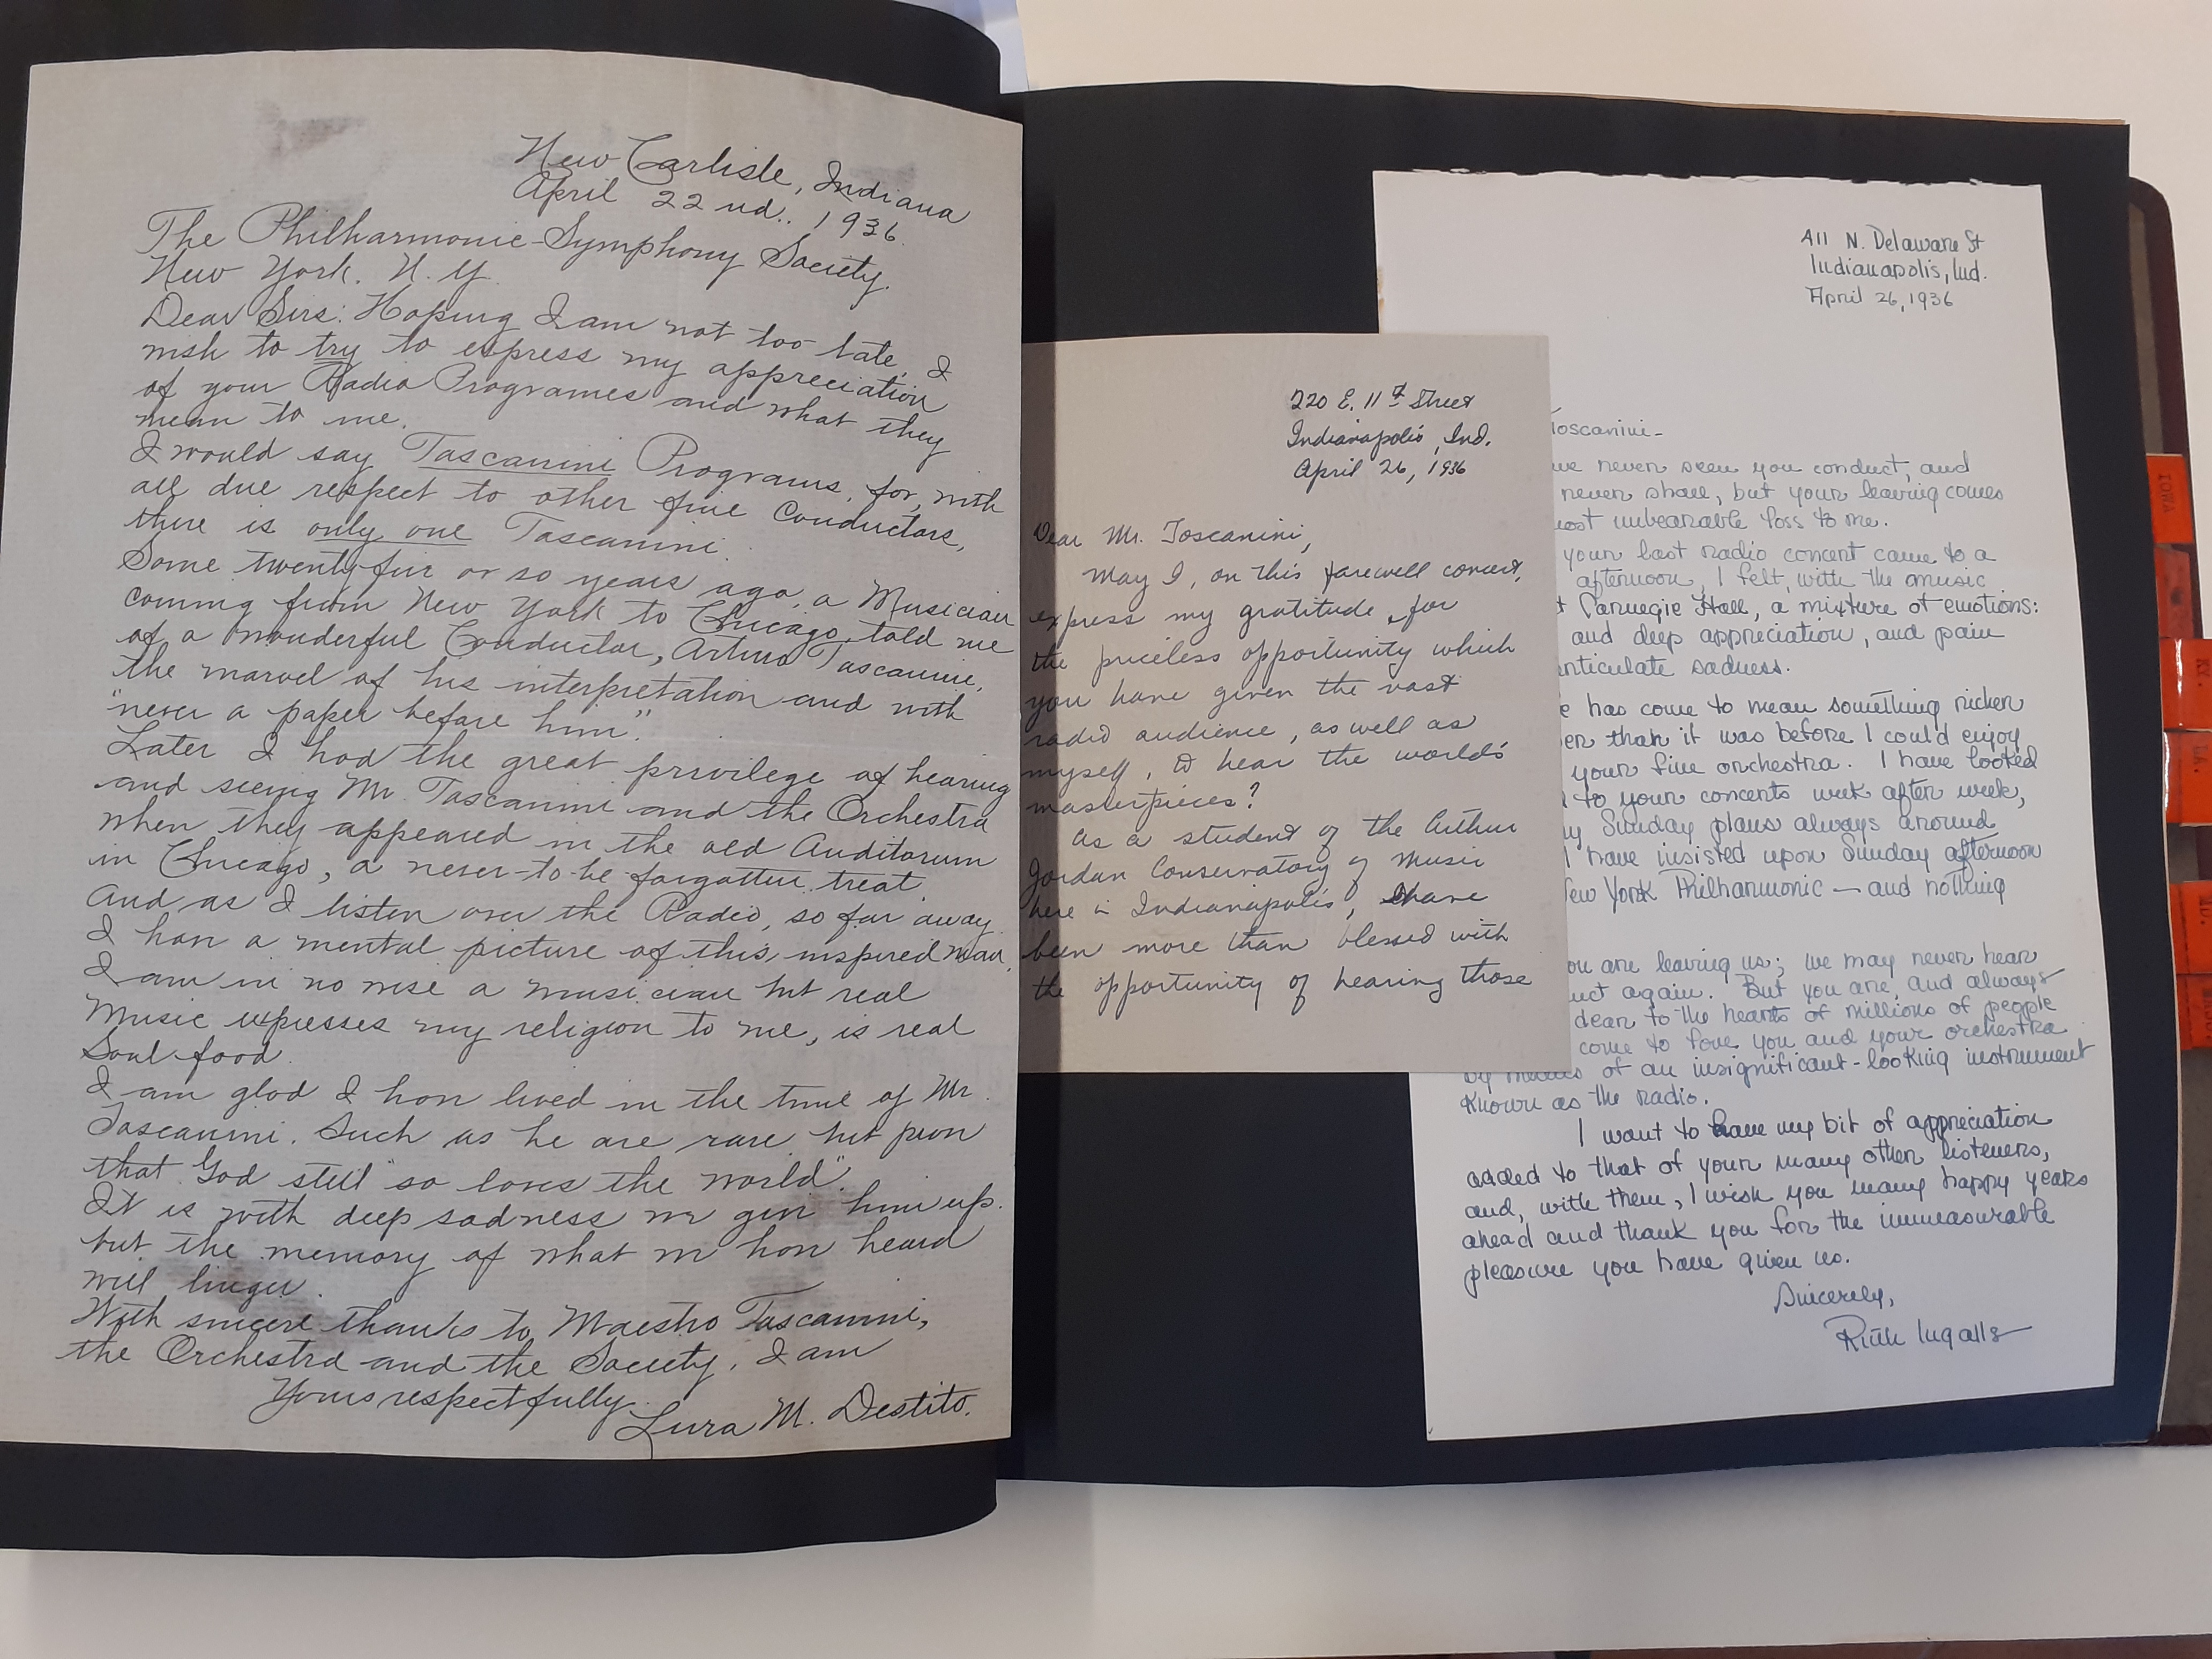 New Carlisle, Indiana
April 22nd., 1936.
The Philharmonic-Symphony Society.
New York. N. Y.
Dear Sirs: Hoping I am not too late, I
wish to try to express my appreciation
of your Radio Programes and what they
mean to me.
I would say Tascanini Programs, for, with
all due respect to other fine Conductors,
there is only one Tascanini.
Some twenty-five or so years ago, a Musician
coming from New York to Chicago, told me
of a wonderful Conductor, Arturo Tascanini,
the marvel of his interpretation and with
"never a paper before him".
Later I had the great privilege of hearing
and seeing Mr. Tascanini and the Orchestra
when they appeared in the old Auditorum
in Chicago, a never-to-be forgotten treat.
And as I listen over the Radio, so far away
I have a mental picture of this inspired man.
I am in no wise a musician but real
Music expresses my religion to me, is real
Soul food.
I am glad I have lived in the time of Mr.
Toscanini. Such as he are rare but prove
that God still "so loves the world".
It is with deep sadness we give him up.
but the memory of what we have heard
will linger.
With sincere thanks to Maestro Tascanini,
the Orchestra and the Society, I am
Yours respectfully.
Lura M. Destito.
220 E. 11th Street
Indianapolis, Ind.
April 26, 1936
Dear Mr. Toscanini,
May I, on this farewell concert,
express my gratitude for
the priceless opportunity which
you have given the vast
radio audience, as well as
myself, to hear the world's
masterpieces?
As a student of the Arthur
Jordan Conservatory of Music
here in Indianapolis, I have
been more than blessed with
the opportunity of hearing those
411 N. Delaware St
Indianapolis, Ind.
April 26, 1936
Toscanini-
never seen you conduct, and
never shall, but your leaving comes
unbearable loss to me.
your last radio concert came to a
afternoon, I felt, with the music
Carnegie Hall, a mixture of emotions:
and deep appreciation, and pain
sadness.
has come to mean something richer
than it was before I could enjoy
your fine orchestra. I have looked
to your concerts week after week,
Sunday plans always around
I have insisted upon Sunday afternoon
New York Philharmonic — and nothing
are leaving us; we may never hear
again. But you are, and always
dear to the hearts of millions of people
come to love you and your orchestra
by means of an insignificant-looking instrument
known as the radio.
I want to have my bit of appreciation
added to that of your many other listeners,
and, with them, I wish you many happy years
ahead and thank you for the immeasurable
pleasure you have given us.
Sincerely,
Ruth Ingalls
IOWA
KY.
LA.